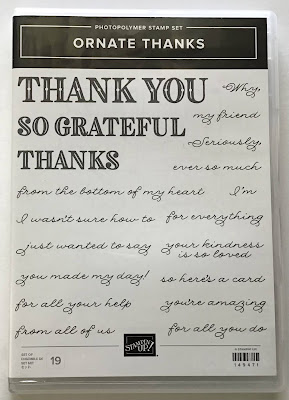 PHOTOPOLYMER STAMP SET
ORNATE THANKS
THANK YOU
Why,
my friend
SO GRATEFUL
Seriously,
THANKS
ever so much
from the bottom of my heart
I'm
I wasn't sure how to
for everything
just wanted to say
your kindness
is so loved
you made my day!
so here's a card
for all your help
you're amazing
from all of us
for all you do
SET OF
19
STAMPIN' UP!
149471